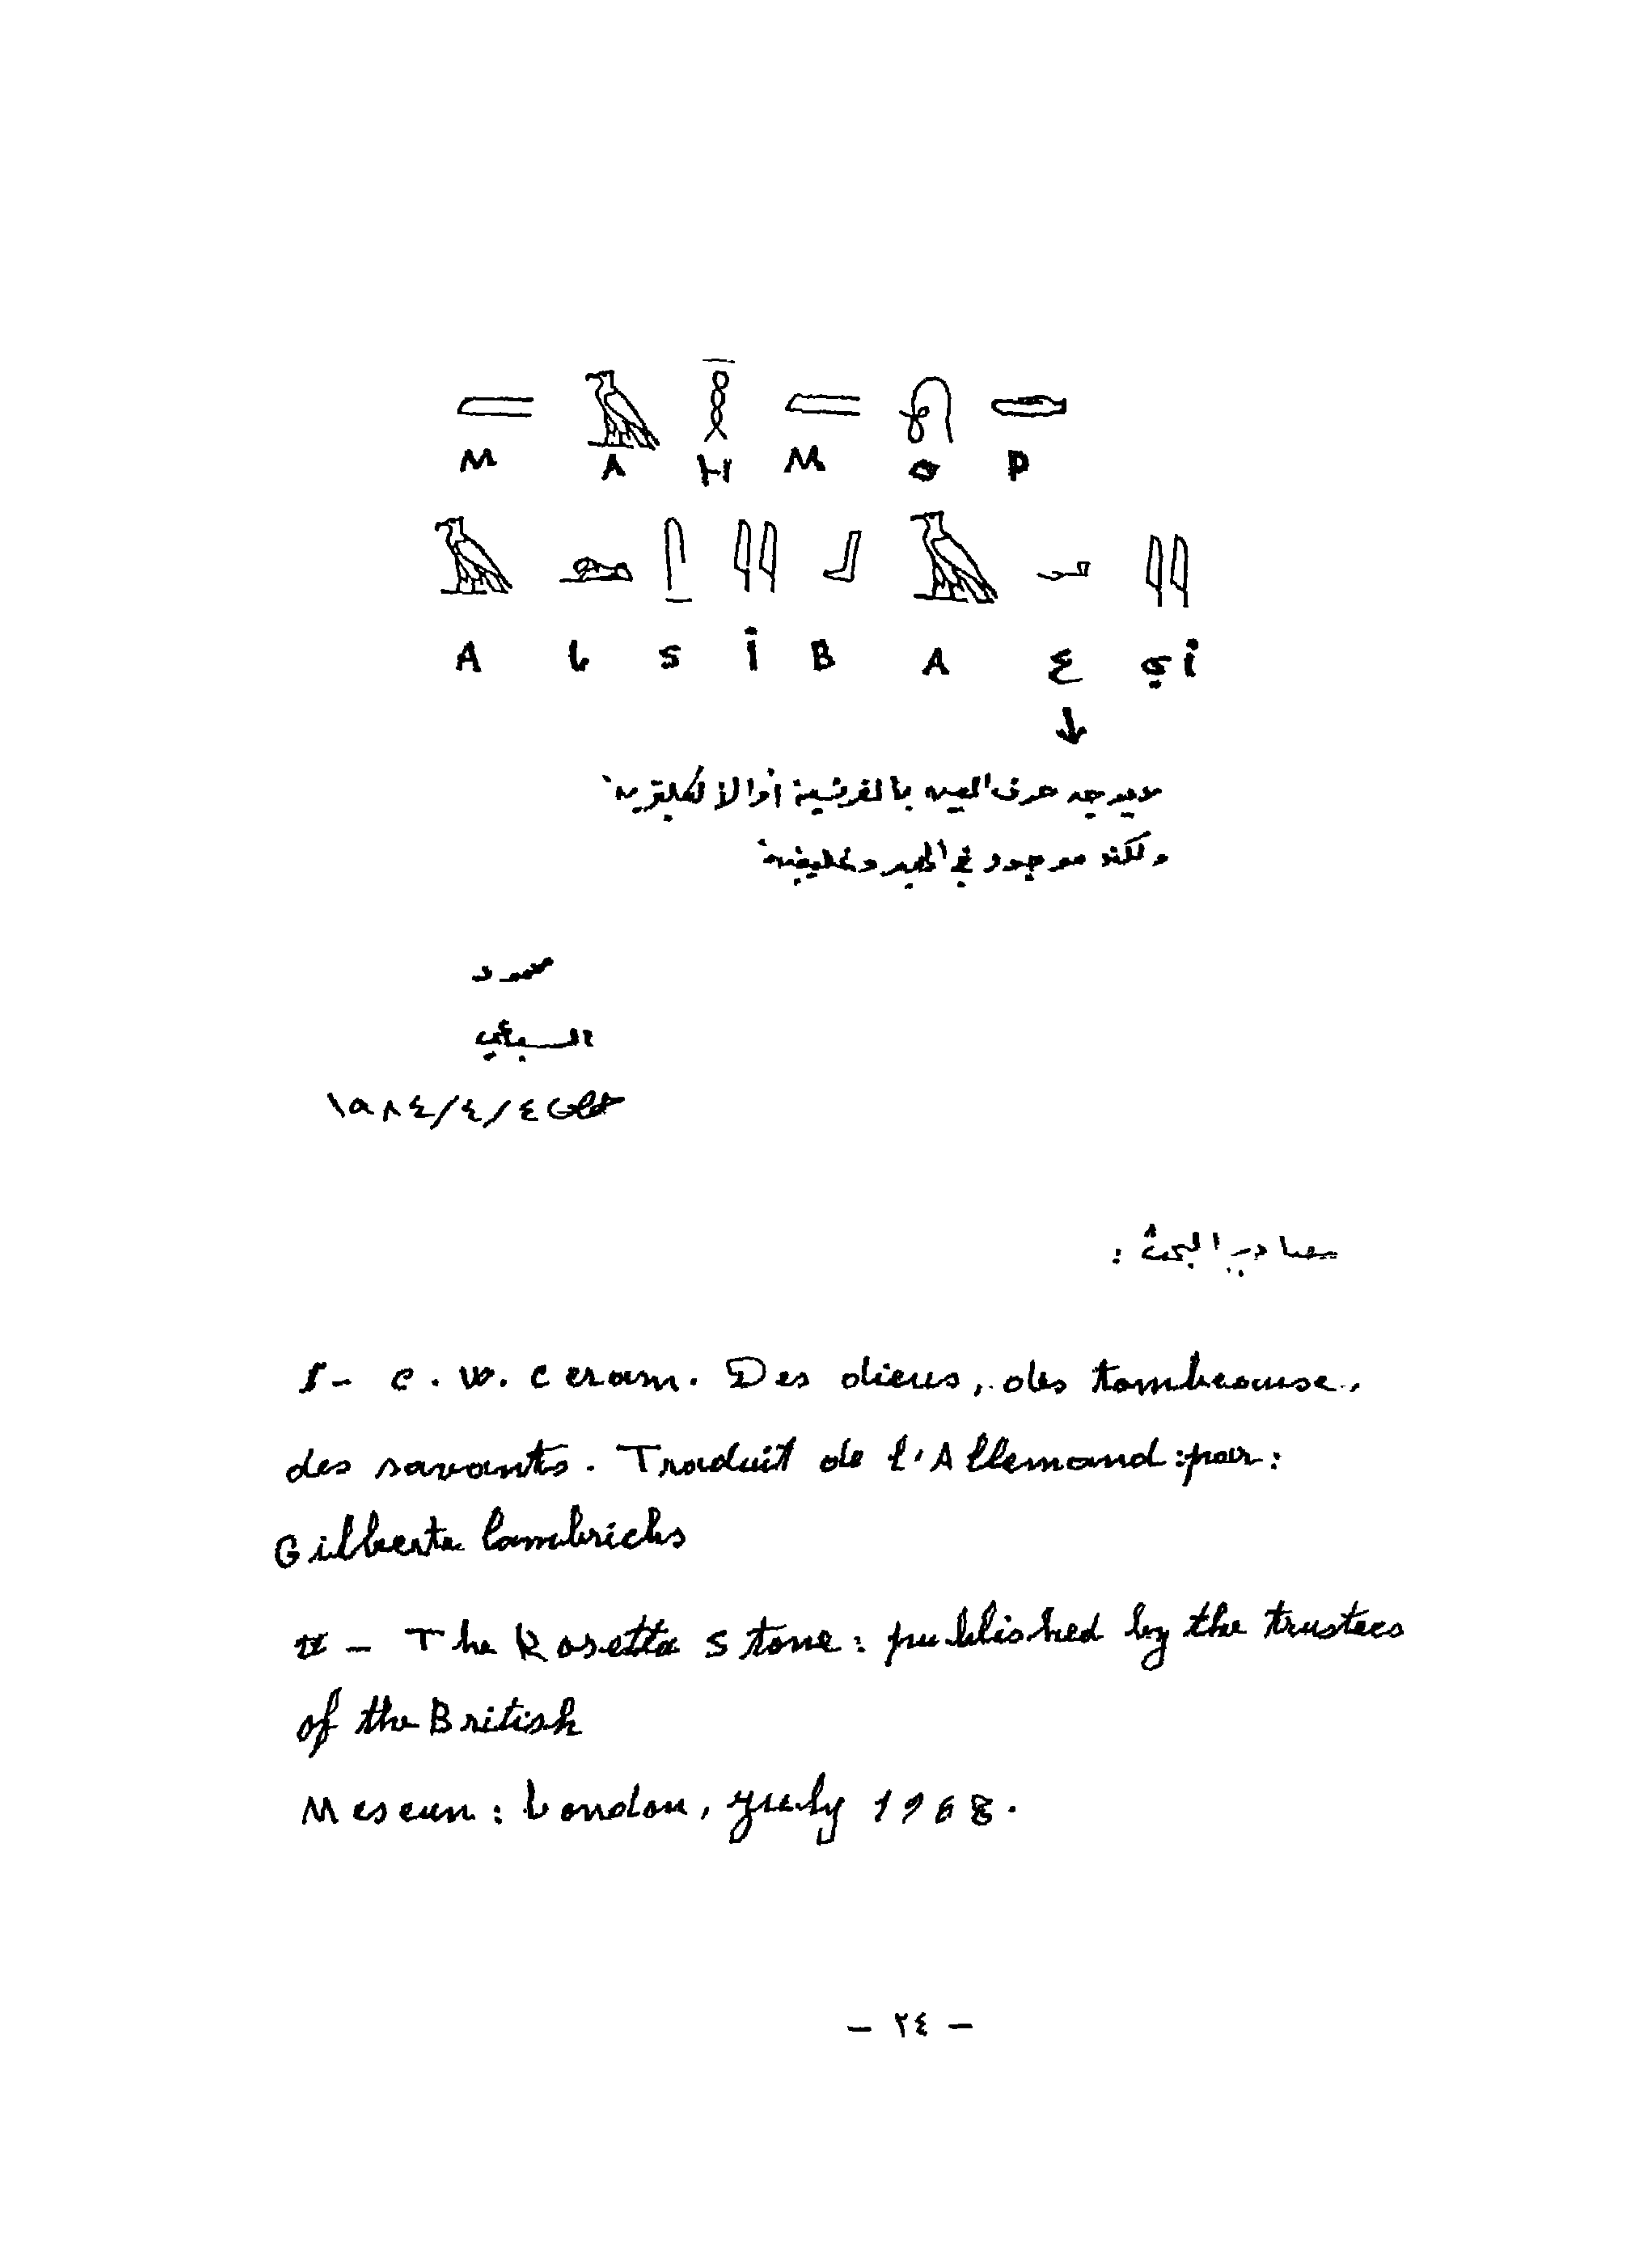 M A H M O D
A L S i B A ع أي
لا يوجد حرف العين بالفرنسية أو الانكليزية
ولكنه موجود في الهيروغليفية
محمود
السباعي
١٩٨٤/٤/٤
مصادر البحث :
I - C. W. Ceram. Des dieus, des tombeause,
des savants. Traduit de l'Allemand :par:
Gilberte lambrichs
II - The Rosetta Stone: published by the trustees
of the British
Meseun: London, July 1968.
- ٢٤ -